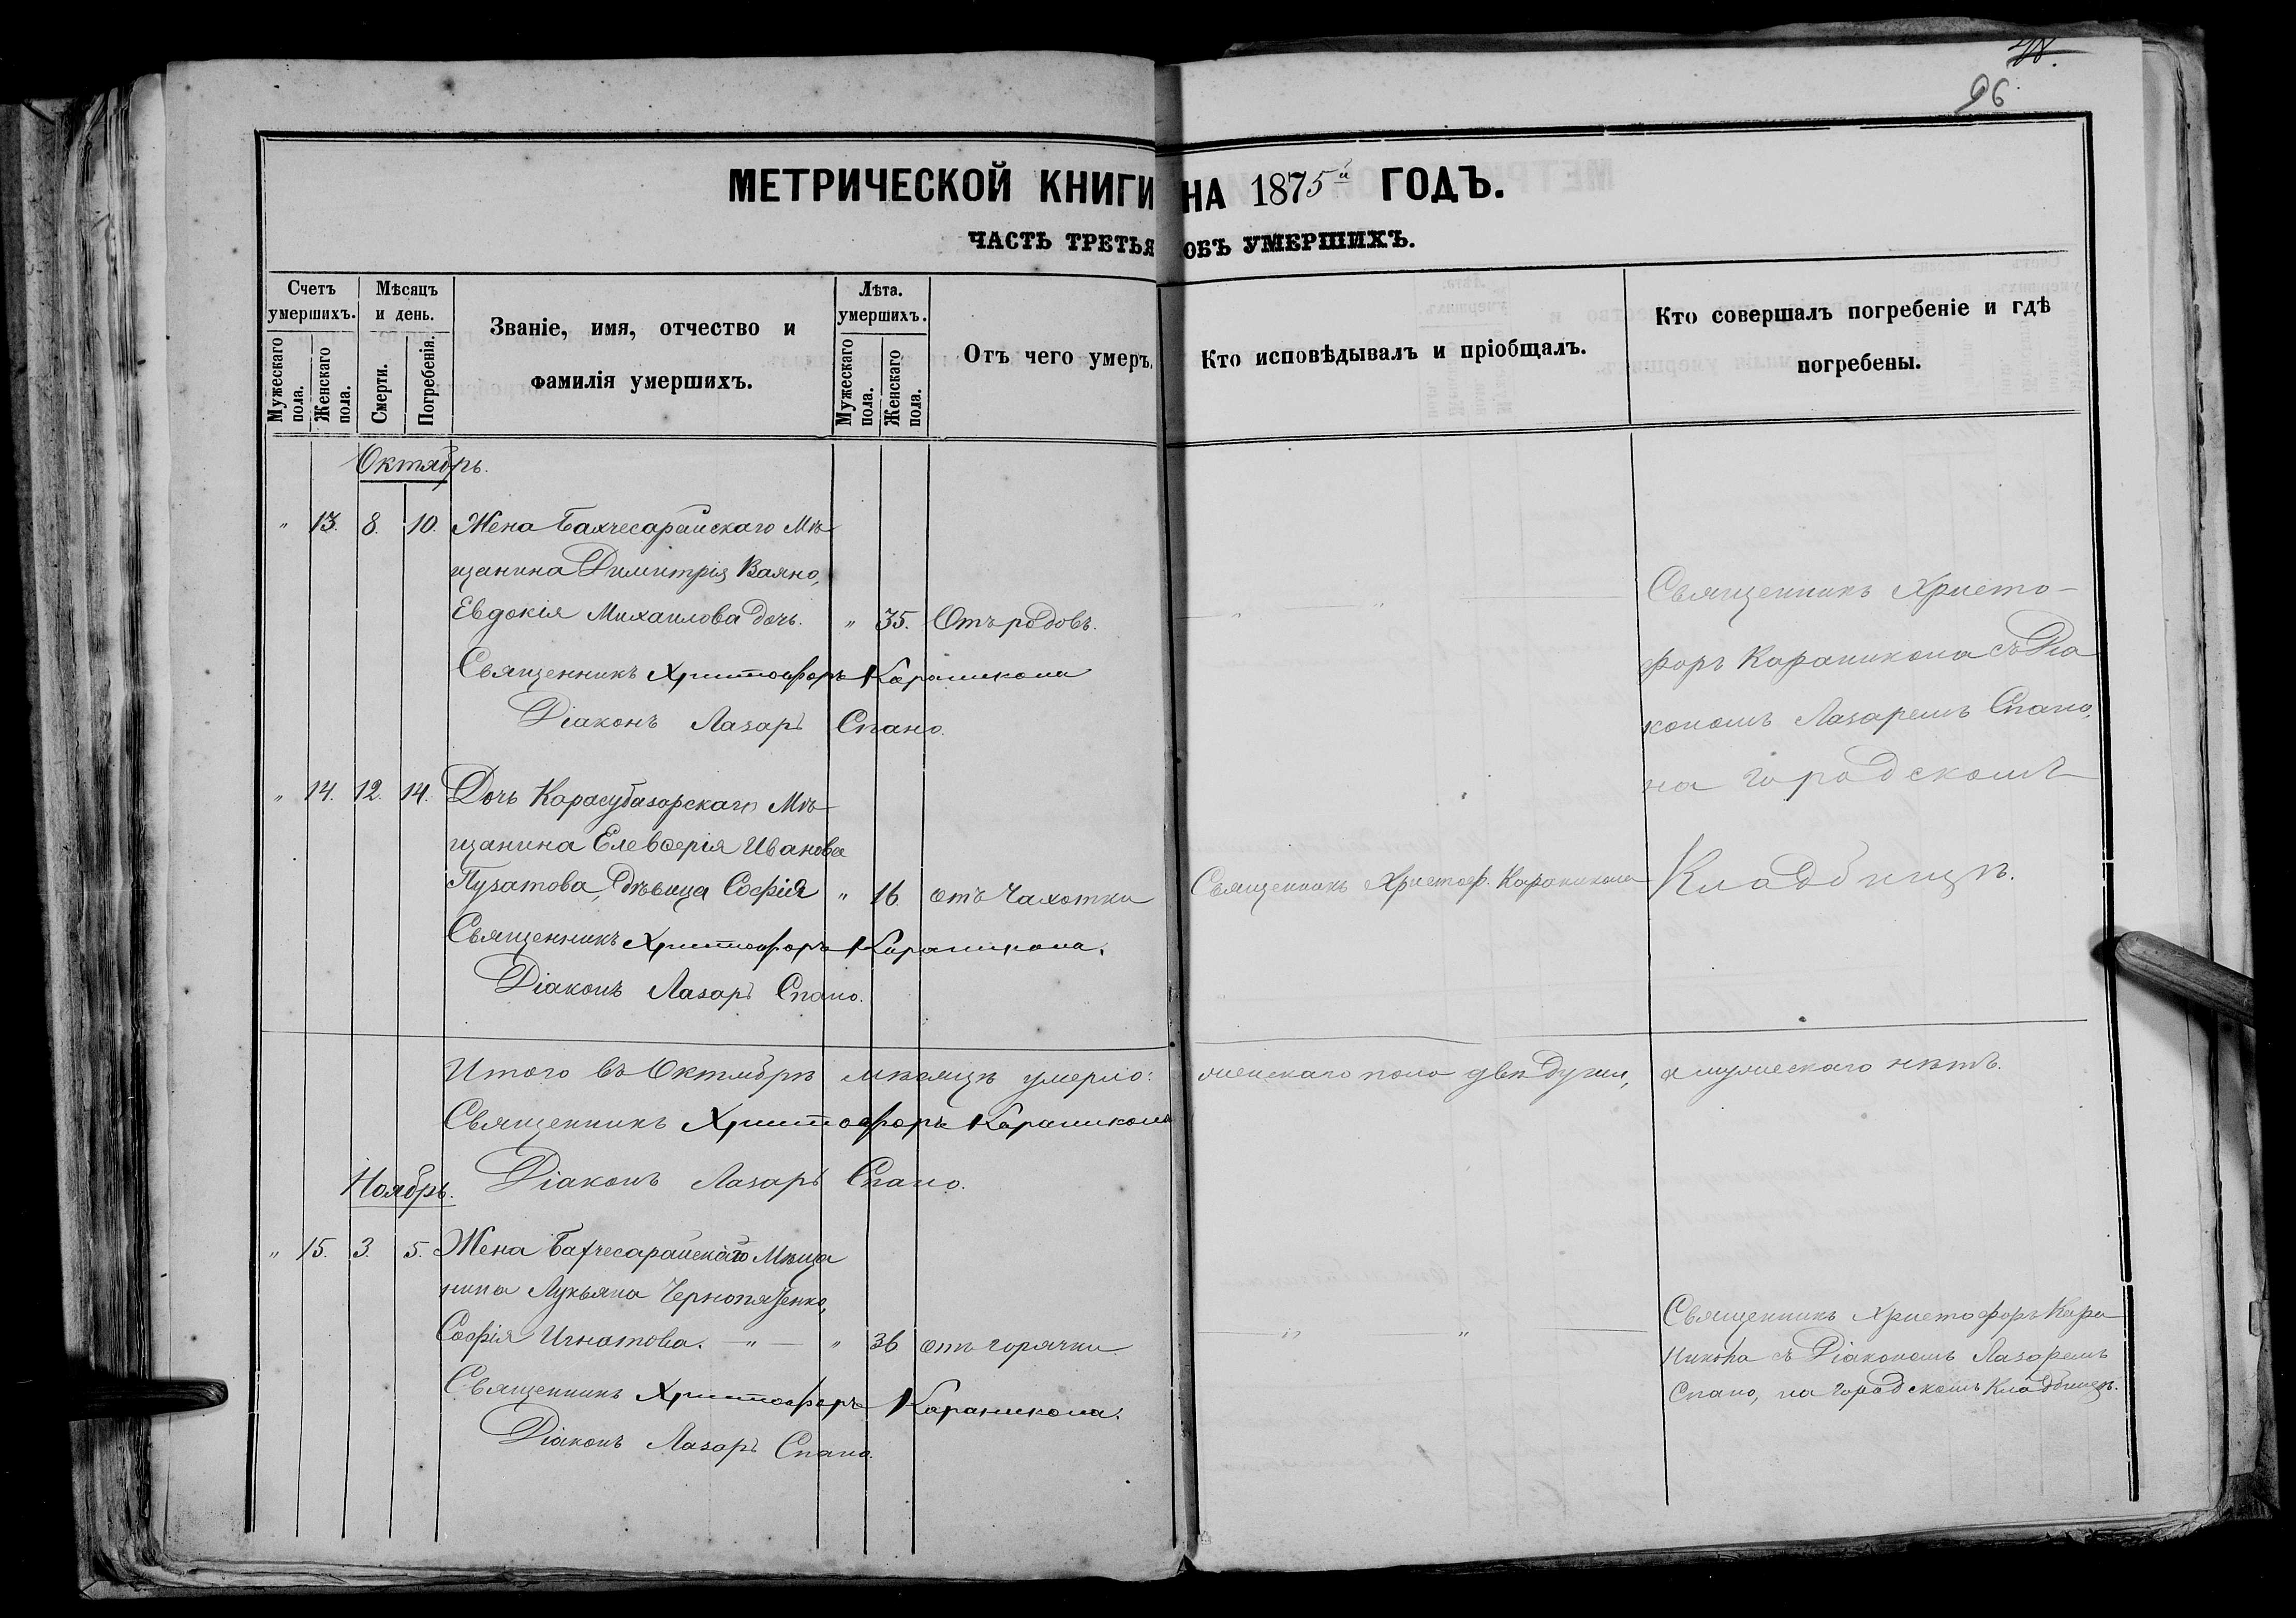 96.
МЕТРИЧЕСКОЙ КНИГИ НА 1875й ГОДЪ.
ЧАСТЬ ТРЕТЬЯ ОБЪ УМЕРШИХЪ.
Счетъ умершихъ.
Мужескаго пола.
Женскаго пола.
Мѣсяцъ и день.
Смерти.
Погребенія.
Званіе, имя, отчество и
фамилія умершихъ.
Лѣта. умершихъ.
Мужескаго пола.
Женскаго пола.
Отъ чего умеръ.
Кто исповѣдывалъ и пріобщалъ.
Кто совершалъ погребеніе и гдѣ
погребены.
Октябрь.
" 13. 8. 10. Жена Бахчесарайскаго Мѣ-
щанина Димитрія Ваяно,
Евдокія Михаилова дочь. " 35. Отъ родовъ.
Священникъ Христофоръ Караникола
Діаконъ Лазарь Спано.
Священникъ Христо-
форъ Караникола съ Діа
кономъ Лазаремъ Спано,
на городскомъ
Кладбищѣ.
" 14. 12. 14. Дочь Карасубазарскаго Мѣ-
щанина Елевѳерія Иванова
Пузатова, дѣвица Софія " 16. отъ Чахотки
Священникъ Христоф. Караникола
Священникъ Христофоръ Караникола.
Діаконъ Лазарь Спано.
Итого въ Октябрѣ мѣсяцѣ умерло: женскаго пола двѣ души, а мужескаго нѣтъ.
Священникъ Христофоръ Караникола
Діаконъ Лазарь Спано.
Ноябрь.
" 15. 3. 5. Жена Бахчесарайскаго Мѣща
нина Лукьяна Чернопятенко,
Софія Игнатова. — " — " 36 отъ горячки
Священникъ Христофоръ Караникола.
Діаконъ Лазарь Спано.
Священникъ Христофоръ Кара
никола съ Діакономъ Лазаремъ
Спано, на городскомъ Кладбищѣ.